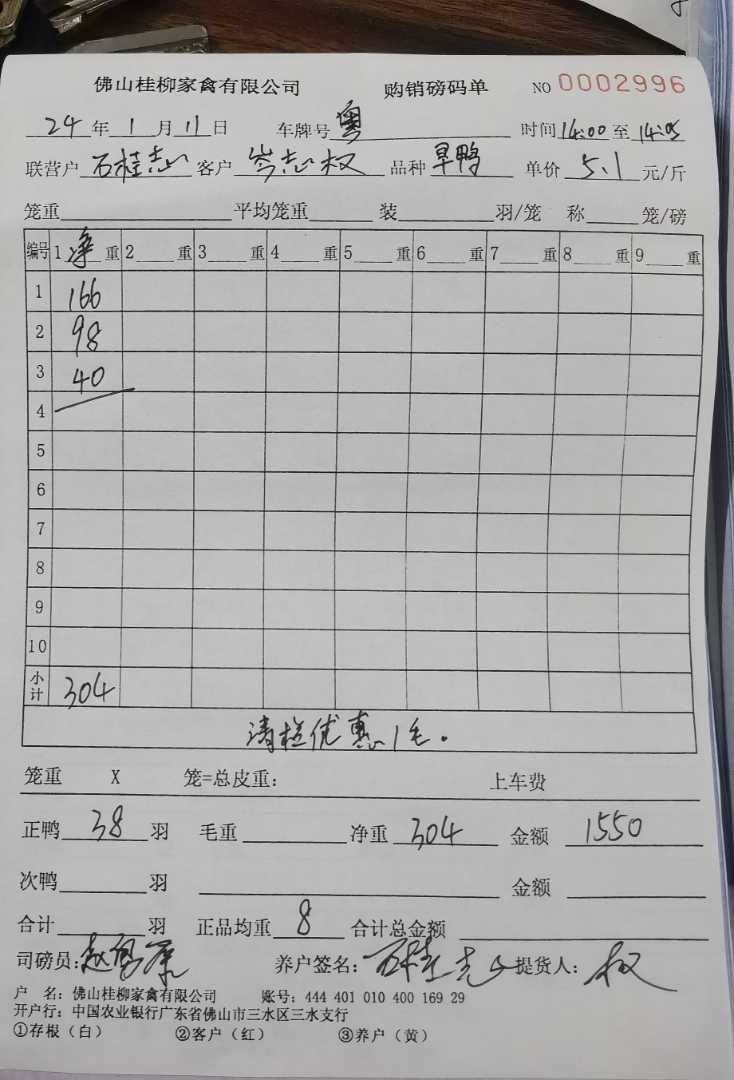 佛山桂柳家禽有限公司 购销磅码单 NO 0002996
24 年 1 月 11 日 车牌号 粤 时间 14:00 至 14:05
联营户 石桂志 客户 岑志权 品种 旱鸭 单价 5.1 元/斤
笼重 平均笼重 装 羽/笼 称 笼/磅
编号 1 净 重 2 重 3 重 4 重 5 重 6 重 7 重 8 重 9 重
1 166
2 98
3 40
4
5
6
7
8
9
10
小计 304
清栏优惠1毛.
笼重 X 笼=总皮重: 上车费
正鸭 38 羽 毛重 净重 304 金额 1550
次鸭 羽 金额
合计 羽 正品均重 8 合计总金额
司磅员: 养户签名: 石桂志 提货人: 权
户 名: 佛山桂柳家禽有限公司 账号: 444 401 010 400 169 29
开户行: 中国农业银行广东省佛山市三水区三水支行
①存根(白) ②客户(红) ③养户(黄)